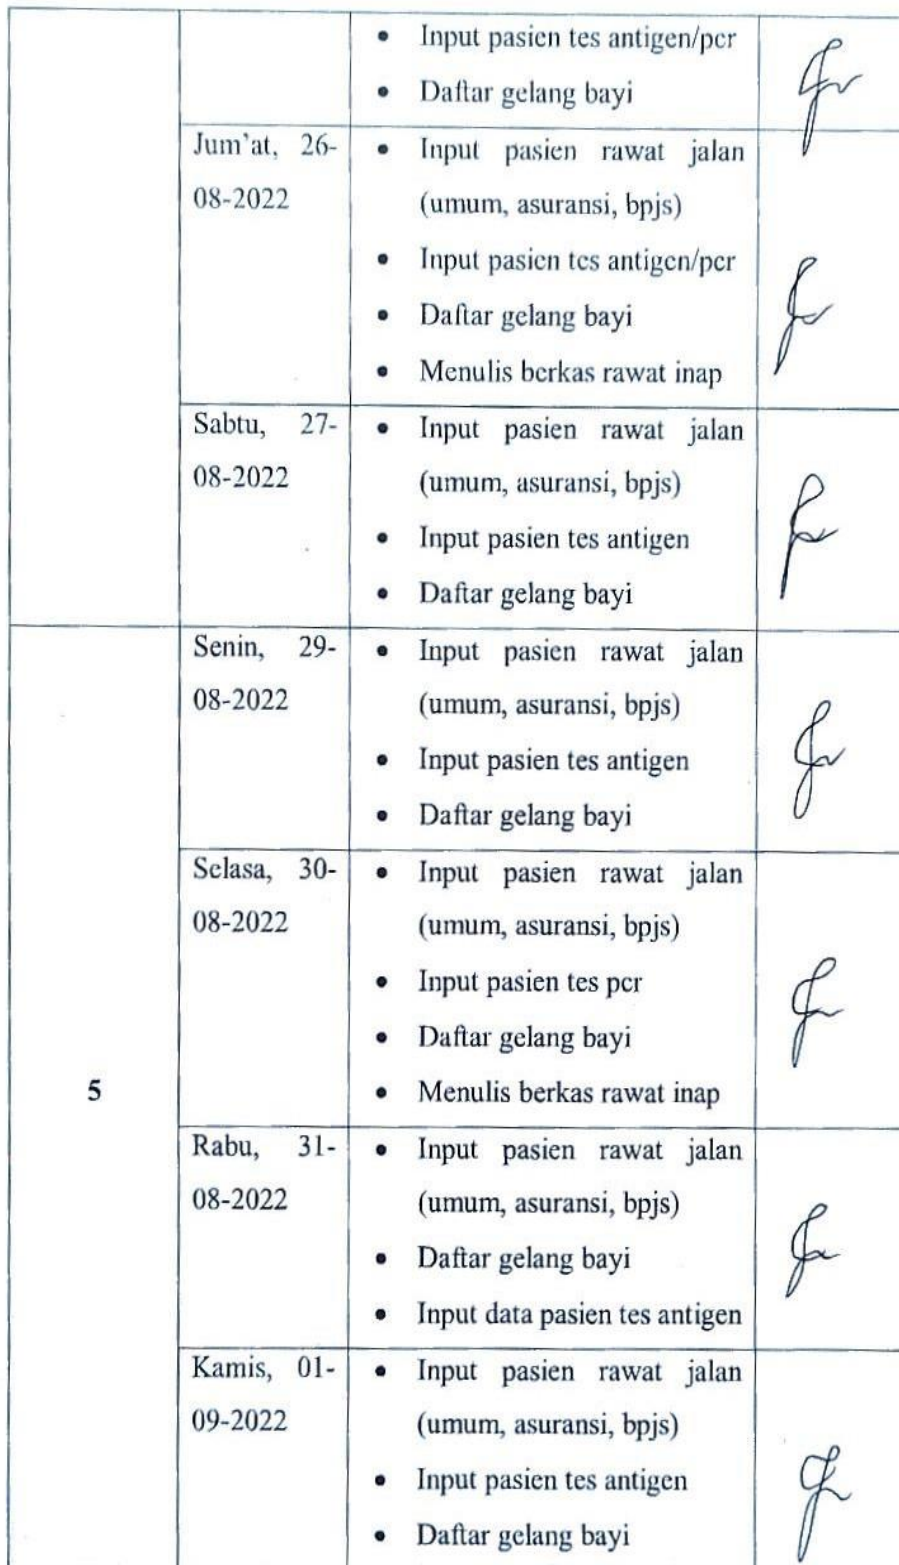 • Input pasien tes antigen/pcr
• Daftar gelang bayi
Jum'at, 26-
08-2022
• Input pasien rawat jalan
(umum, asuransi, bpjs)
• Input pasien tes antigen/pcr
• Daftar gelang bayi
• Menulis berkas rawat inap
Sabtu, 27-
08-2022
• Input pasien rawat jalan
(umum, asuransi, bpjs)
• Input pasien tes antigen
• Daftar gelang bayi
5
Senin, 29-
08-2022
• Input pasien rawat jalan
(umum, asuransi, bpjs)
• Input pasien tes antigen
• Daftar gelang bayi
Selasa, 30-
08-2022
• Input pasien rawat jalan
(umum, asuransi, bpjs)
• Input pasien tes pcr
• Daftar gelang bayi
• Menulis berkas rawat inap
Rabu, 31-
08-2022
• Input pasien rawat jalan
(umum, asuransi, bpjs)
• Daftar gelang bayi
• Input data pasien tes antigen
Kamis, 01-
09-2022
• Input pasien rawat jalan
(umum, asuransi, bpjs)
• Input pasien tes antigen
• Daftar gelang bayi